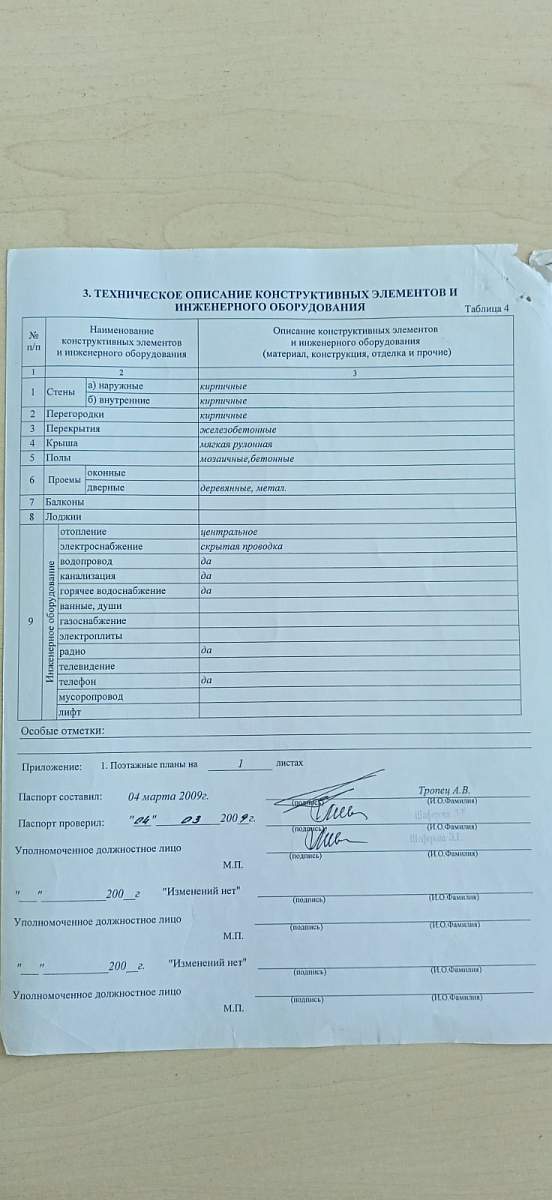 3. ТЕХНИЧЕСКОЕ ОПИСАНИЕ КОНСТРУКТИВНЫХ ЭЛЕМЕНТОВ И
ИНЖЕНЕРНОГО ОБОРУДОВАНИЯ
Таблица 4
№ п/п
Наименование
конструктивных элементов
и инженерного оборудования
Описание конструктивных элементов
и инженерного оборудования
(материал, конструкция, отделка и прочие)
1 2 3
1 Стены а) наружные кирпичные
б) внутренние кирпичные
2 Перегородки кирпичные
3 Перекрытия железобетонные
4 Крыша мягкая рулонная
5 Полы мозаичные,бетонные
6 Проемы оконные
дверные деревянные, метал.
7 Балконы
8 Лоджии
9 Инженерное оборудование
отопление центральное
электроснабжение скрытая проводка
водопровод да
канализация да
горячее водоснабжение да
ванные, души
газоснабжение
электроплиты
радио да
телевидение
телефон да
мусоропровод
лифт
Особые отметки:
Приложение: 1. Поэтажные планы на 1 листах
Паспорт составил: 04 марта 2009г. Тропец А.В.
(подпись) (И.О.Фамилия)
Паспорт проверил: "04" 03 2009 г.
(подпись) (И.О.Фамилия)
Уполномоченное должностное лицо
(подпись) (И.О.Фамилия)
М.П.
"___"__________200__г "Изменений нет"
(подпись) (И.О.Фамилия)
Уполномоченное должностное лицо
(подпись) (И.О.Фамилия)
М.П.
"___"__________200__г. "Изменений нет"
(подпись) (И.О.Фамилия)
Уполномоченное должностное лицо
(подпись) (И.О.Фамилия)
М.П.